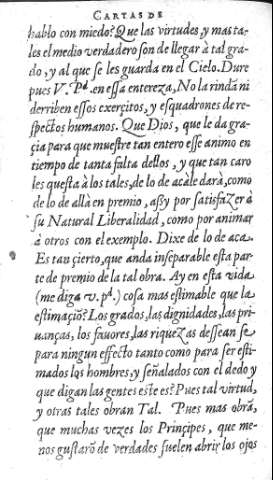 CARTAS DE
hablo con miedo? Que las virtudes, y mas ta-
les el medio verdadero son de llegar à tal gra-
do, y al que se les guarda en el Cielo. Dure
pues V. Pᵈ. en essa entereza, No la rinda ni
derriben essos exerçitos, y esquadrones de re-
spectos humanos. Que Dios, que le da gra-
çia para que muestre tan entero esse animo en
tiempo de tanta falta dellos, y que tan caro
les questa à los tales, de lo de acà le dara, como
de lo de allà en premio, assy por satisfazer à
su Natural Liberalidad, como por animar
à otros con el exemplo. Dixe de lo de aca.
Es tan çierto, que anda inseparable esta par-
te de premio de la tal obra. Ay en esta vida
(me diga v. pᵈ.) cosa mas estimable que la
estimaçiō? Los grados, las dignidades, las pri-
uanças, los fauores, las riquezas dessean se
para ningun effecto tanto como para ser esti-
mados los hombres, y señalados con el dedo y
que digan las gentes este es? Pues tal virtud,
y otras tales obran Tal. Pues mas obrā,
que muchas vezes los Prinçipes, que me-
nos gustarō de verdades suelen abrir los ojos